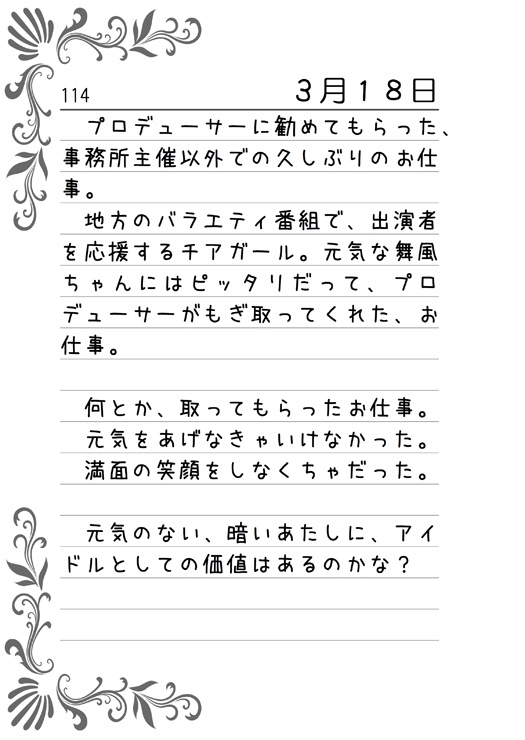 114
3月18日
プロデューサーに勧めてもらった、
事務所主催以外での久しぶりのお仕
事。
地方のバラエティ番組で、出演者
を応援するチアガール。元気な舞風
ちゃんにはピッタリだって、プロ
デューサーがもぎ取ってくれた、お
仕事。
何とか、取ってもらったお仕事。
元気をあげなきゃいけなかった。
満面の笑顔をしなくちゃだった。
元気のない、暗いあたしに、アイ
ドルとしての価値はあるのかな？